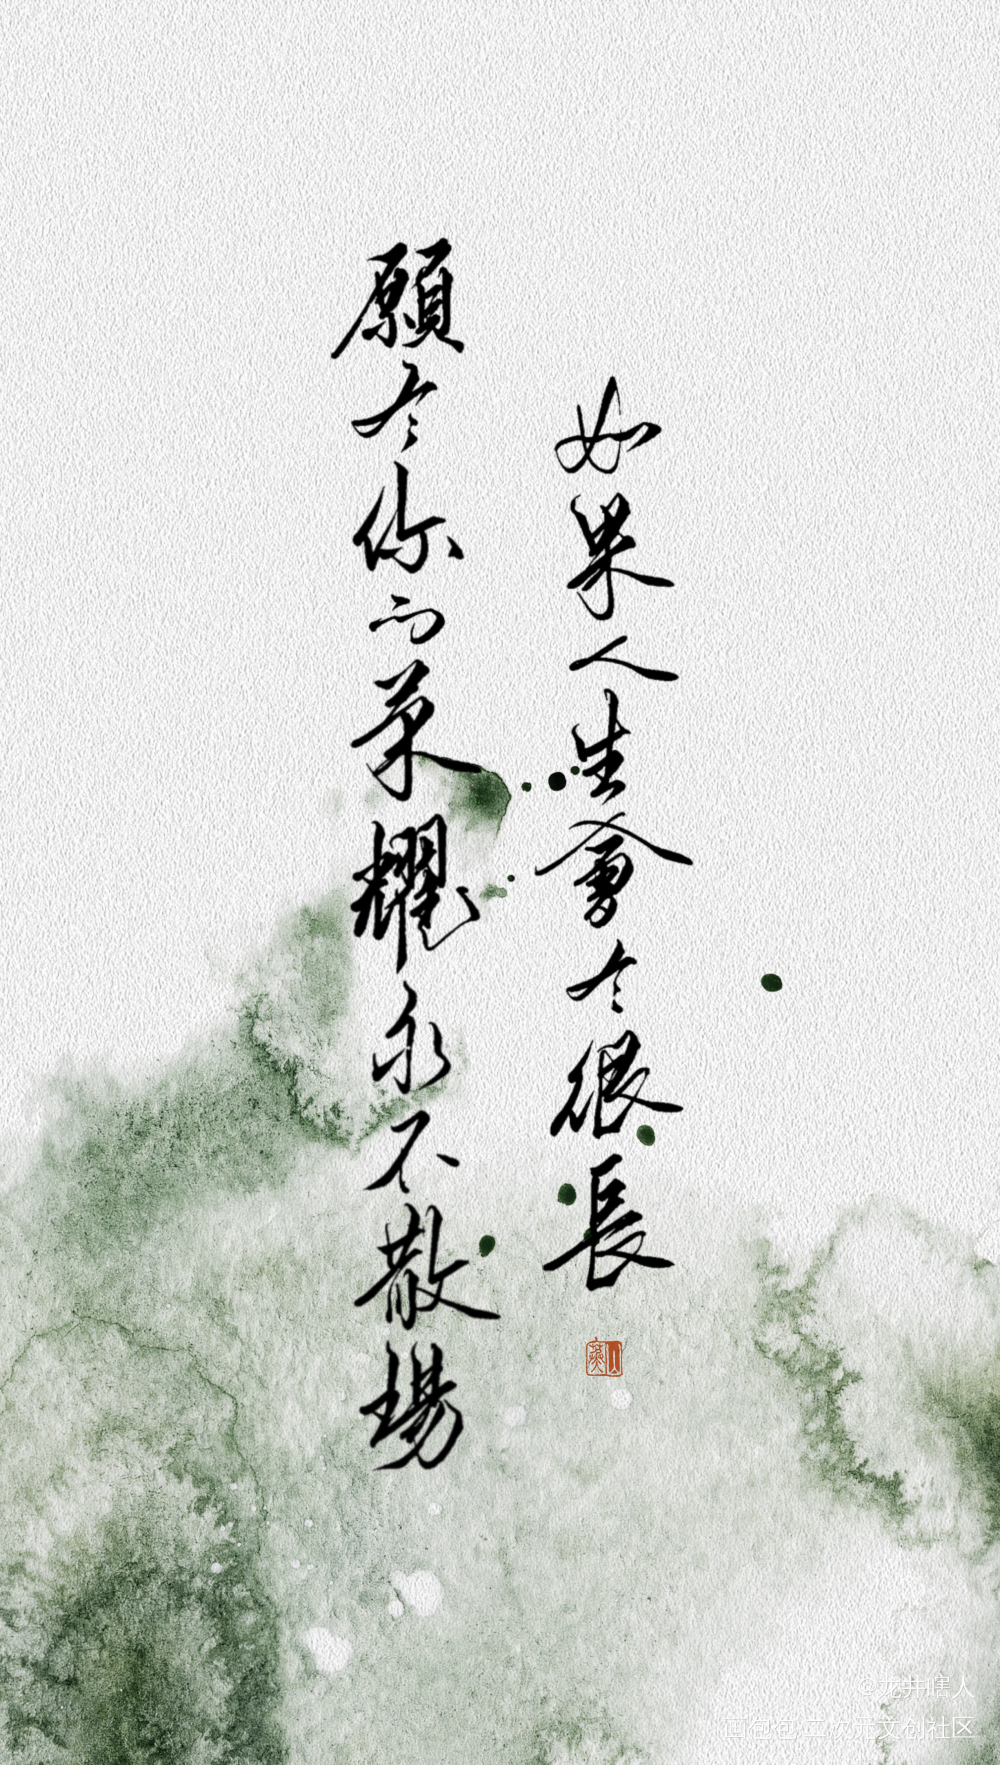 如果人生會有很長
願有你的荣耀永不散場
@龙井瞎人
二次元文创社区